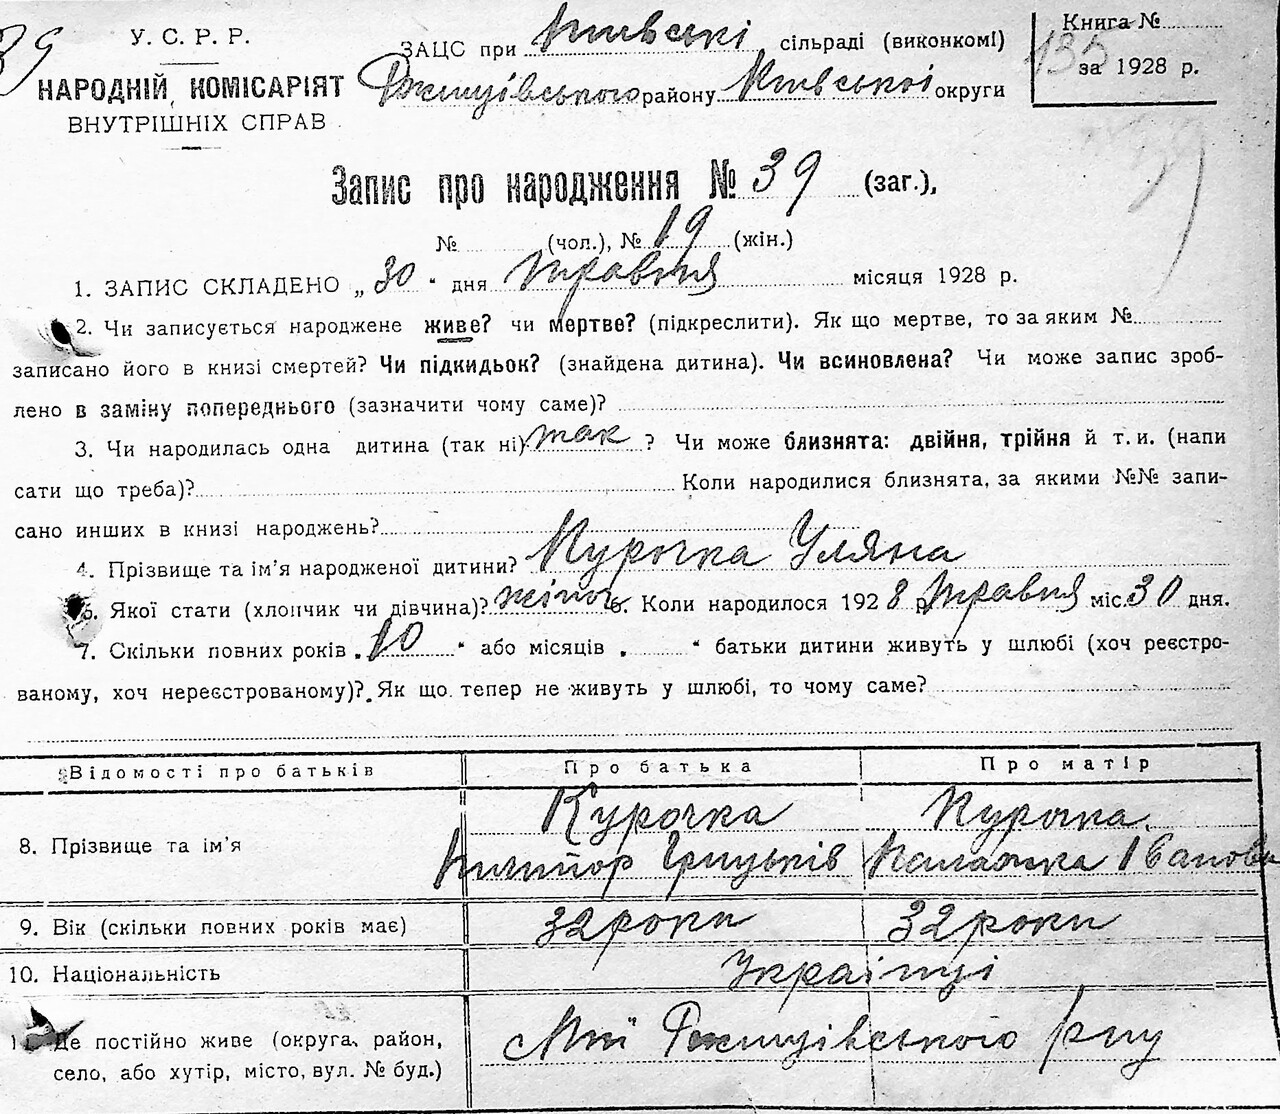 39
У. С. Р. Р.
НАРОДНІЙ КОМІСАРІЯТ
ВНУТРІШНІХ СПРАВ
ЗАЦС при сільраді (виконкомі)
Ржищівського району Київської округи
Книга №
135
за 1928 р.
Запис про народження № 39 (заг.),
№ (чол.), № 19 (жін.)
1. ЗАПИС СКЛАДЕНО „ 30 " дня травня місяця 1928 р.
2. Чи записується народжене живе? чи мертве? (підкреслити). Як що мертве, то за яким №
записано його в книзі смертей? Чи підкидьок? (знайдена дитина). Чи всиновлена? Чи може запис зроб-
лено в заміну попереднього (зазначити чому саме)?
3. Чи народилась одна дитина (так ні) так ? Чи може близнята: двійня, трійня й т. и. (напи
сати що треба)? Коли народилися близнята, за якими №№ запи-
сано инших в книзі народжень?
4. Прізвище та ім'я народженої дитини? Курочка Уляна
5. Якої стати (хлопчик чи дівчина)? жіноч 6. Коли народилося 1928 р. травня міс. 30 дня.
7. Скільки повних років „ 10 " або місяців „ " батьки дитини живуть у шлюбі (хоч реєстро-
ваному, хоч нереєстрованому)? Як що тепер не живуть у шлюбі, то чому саме?
Відомості про батьків Про батька Про матір
8. Прізвище та ім'я Курочка Курочка
Грицьків Іванова
9. Вік (скільки повних років має) 32 роки 32 роки
10. Національність Українці
Де постійно живе (округа, район, Ржищівського р-ну
село, або хутір, місто, вул. № буд.)